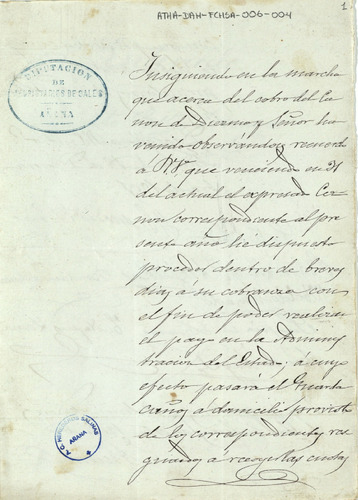 ATHA-DAH-FCHSA-006-004
1
DIPUTACION
DE
DE SALES
AÑANA
Insiguiendo en la marcha
que acerca del cobro del Ca
non de Diezmo y Señor ha
venido observándose, recuerdo
á V. que venciendo en 31
del actual el expresado Ca
non correspondiente al pre
sente año, hé dispuesto
proceder dentro de breves
dias á su cobranza con
el fin de poder realizar
el pago en la Adminis
tracion del Estado; a cuyo
efecto pasará el Guarda
á domicilio provisto
de los correspondientes res
guardos á recoger las cuotas
SALINAS
AÑANA